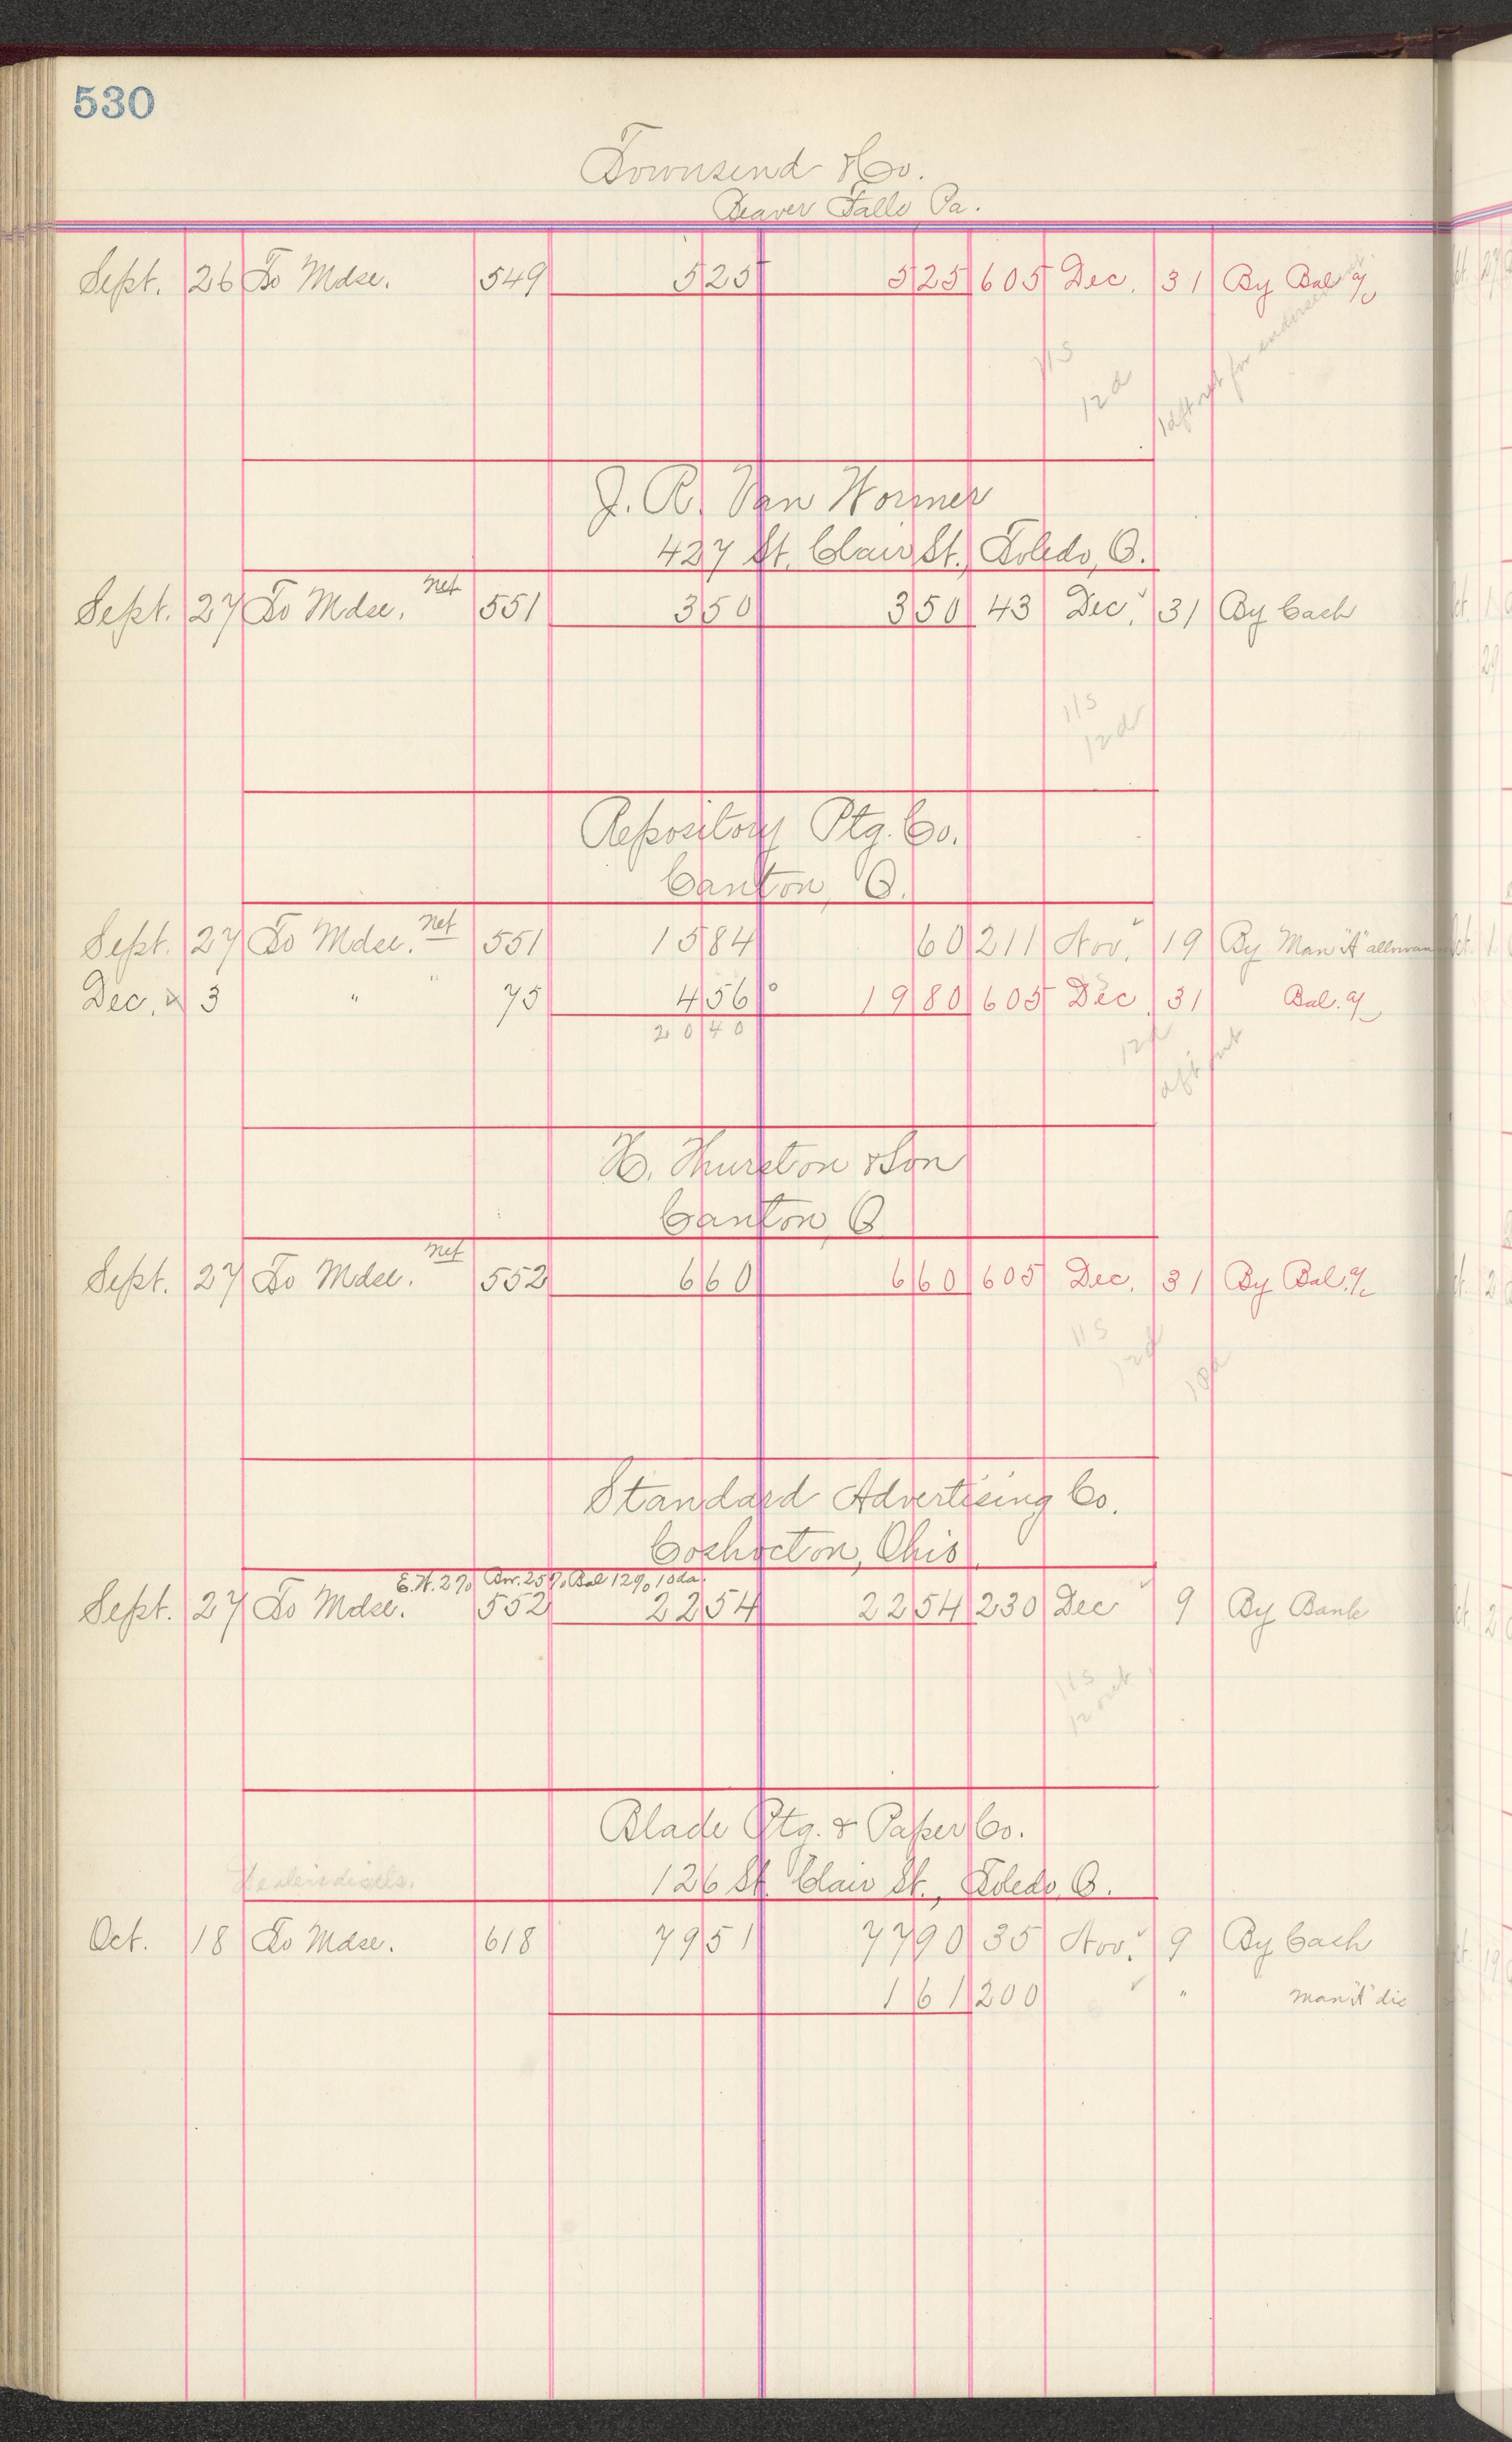 530
Townsend & Co.
Beaver Falls Pa.
Sept. 26 To Mdse. 549 5 25 5 25 605 Dec. 31 By Bal a/c
115
12 d
for
J. R. Van Wormer
427 St. Clair St., Toledo, O.
Sept. 27 To Mdse. net 551 3 50 3 50 43 Dec. 31 By Cash
115
12 d
Repository Ptg. Co.
Canton, O.
Sept. 27 To Mdse. net 551 15 84 60 211 Nov. 19 By Man "A" allowan
Dec. 3 " " 75 4 56 19 80 605 Dec 31 Bal. a/c
20 40
H. Thurston & Son
Canton, O
Sept. 27 To Mdse. net 552 6 60 6 60 605 Dec. 31 By Bal. a/c
115
12 d
Standard Advertising Co.
Coshocton, Ohio
E.H. 2% Brr. 25% Bal 12% 10 da.
Sept. 27 To Mdse. 552 22 54 22 54 230 Dec 9 By Bank
115
Blade Ptg. & Paper Co.
126 St. Clair St., Toledo, O.
Oct. 18 To Mdse. 618 79 51 77 90 35 Nov. 9 By Cash
1 61 200 " Man "A" dis